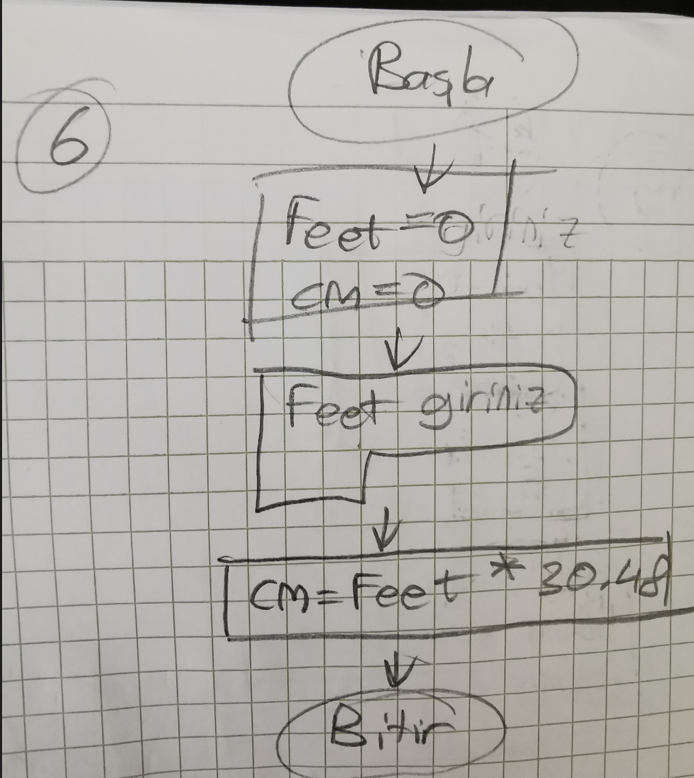 Başla
6
Feet = 0
cm = 0
Feet giriniz
cm = Feet * 30.48
Bitir